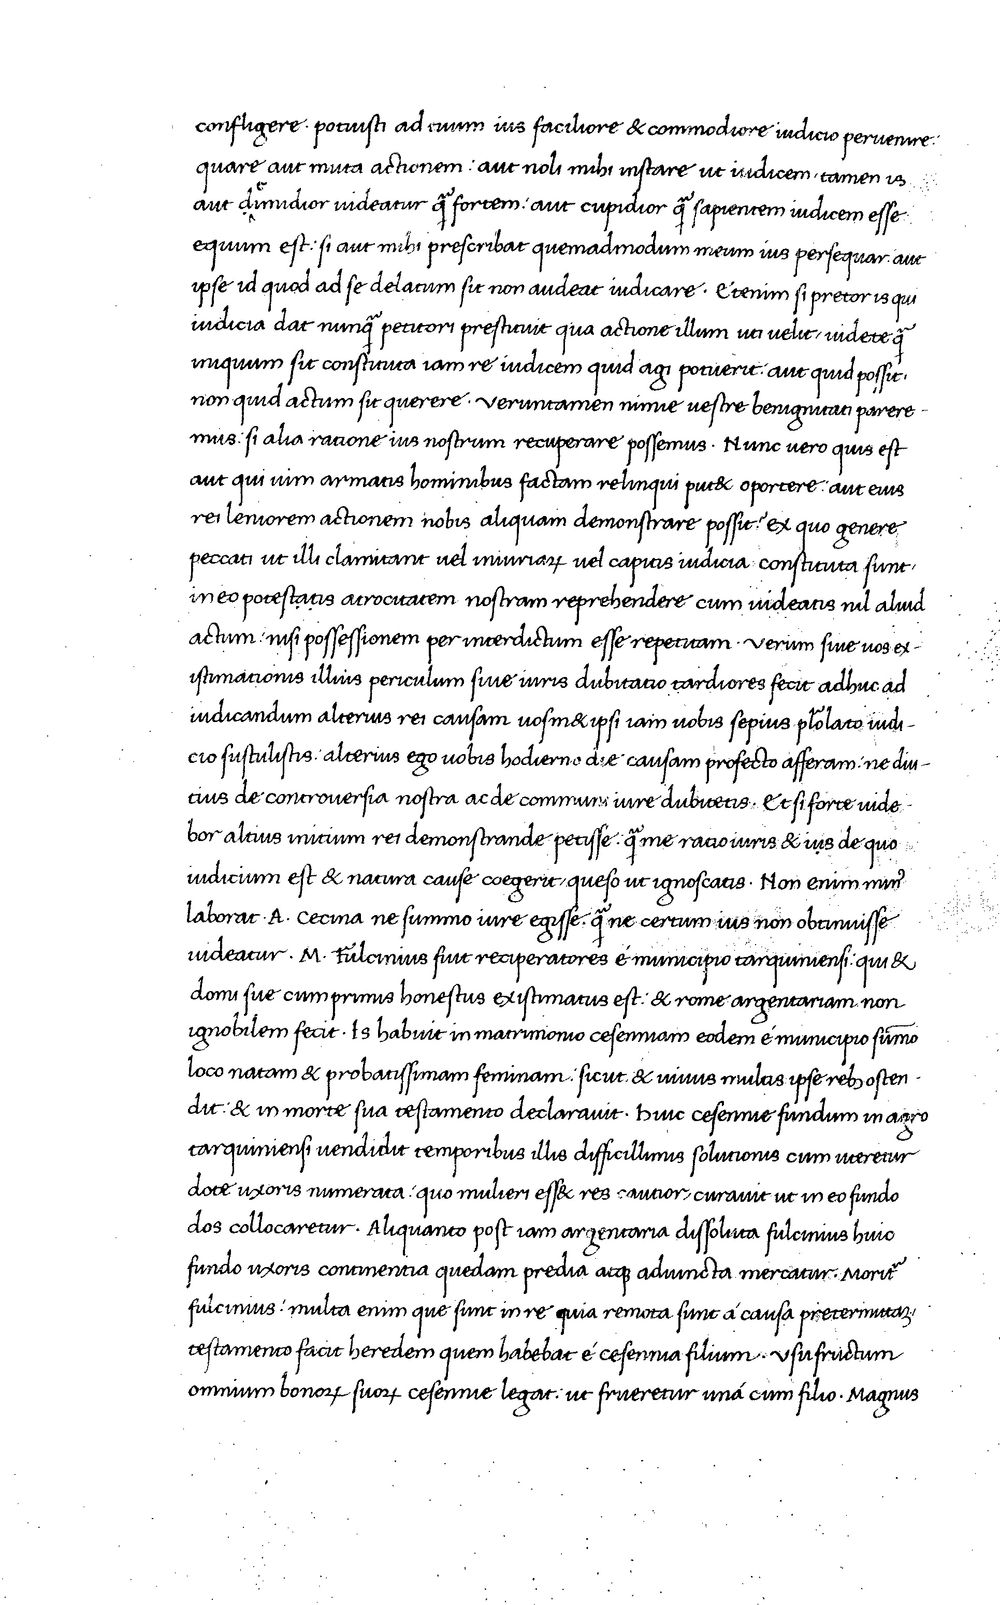 confligere · potuisti ad tuum ius faciliore & commodiore iudicio peruenire:
quare aut muta actionem: aut noli mihi instare ut iudicem, tamen is
aut dimidior uideatur q̃ fortem: aut cupidior q̃ sapientem iudicem esse
equum est: si aut mihi prescribat quemadmodum meum ius persequar: aut
ipse id quod ad se delatum sit non audeat iudicare · Etenim si pretor is qui
iudicia dat nunq̃ petitori prestituit qua actione illum uti uelit, uidete q̃
iniquum sit constituta iam re iudicem quid agi potuerit: aut quid possit,
non quid actum sit querere · Veruntamen nimie uestre benignitati parere-
mus: si alia ratione ius nostrum recuperare possemus · Nunc uero quis est
aut qui uim armatis hominibus factam relinqui put& oportere: aut eius
rei leniorem actionem nobis aliquam demonstrare possit? ex quo genere
peccati ut illi clamitant uel iniuriaꝝ uel capitis iudicia constituta sunt,
in eo potestatis atrocitatem nostram reprehendere cum uideatis nil aliud
actum: nisi possessionem per interdictum esse repetitam · Verum siue uos ex-
istimationis illius periculum siue iuris dubitatio tardiores fecit adhuc ad
iudicandum alterius rei causam uosm&ipsi iam uobis sepius ꝓlato iudi-
cio sustulistis: alterius ego uobis hodierno die causam profecto afferam: ne diu-
tius de controuersia nostra ac de communi iure dubitetis · Et si forte uide-
bor altius initium rei demonstrande petisse: q̃ me ratio iuris & ius de quo
iudicium est & natura cause coegerit, queso ut ignoscatis · Non enim min᷒
laborat · A · Cecina ne summo iure egisse: q̃ ne certum ius non obtinuisse
uideatur · M · Fulcinius fuit reciperatores é municipio tarquiniensi: qui &
domi sue cum primis honestus existimatus est: & rome argentariam non
ignobilem fecit · Is habuit in matrimonio cesenniam eodem é municipio sum̄o
loco natam & probatissimam feminam: sicut & uiuus multis ipse rebꝫ osten-
dit: & in morte sua testamento declarauit · huic cesennie fundum in agro
tarquiniensi uendidit temporibus illis difficillimis solutionis cum uteretur
dote uxoris numerata: quo mulieri ess& res cautior, curauit ut in eo fundo
dos collocaretur · Aliquanto post iam argentaria dissoluta fulcinius huic
fundo uxoris continentia quedam predia atqꝫ adiuncta mercatur · Morit᷑
fulcinius: multa enim que sunt in re quia remota sunt á causa pretermittaꝫ,
testamento facit heredem quem habebat é cesennia filium · Vsufructum
omnium bonoꝝ suoꝝ cesennie legat: ut frueretur uná cum filio · Magnus